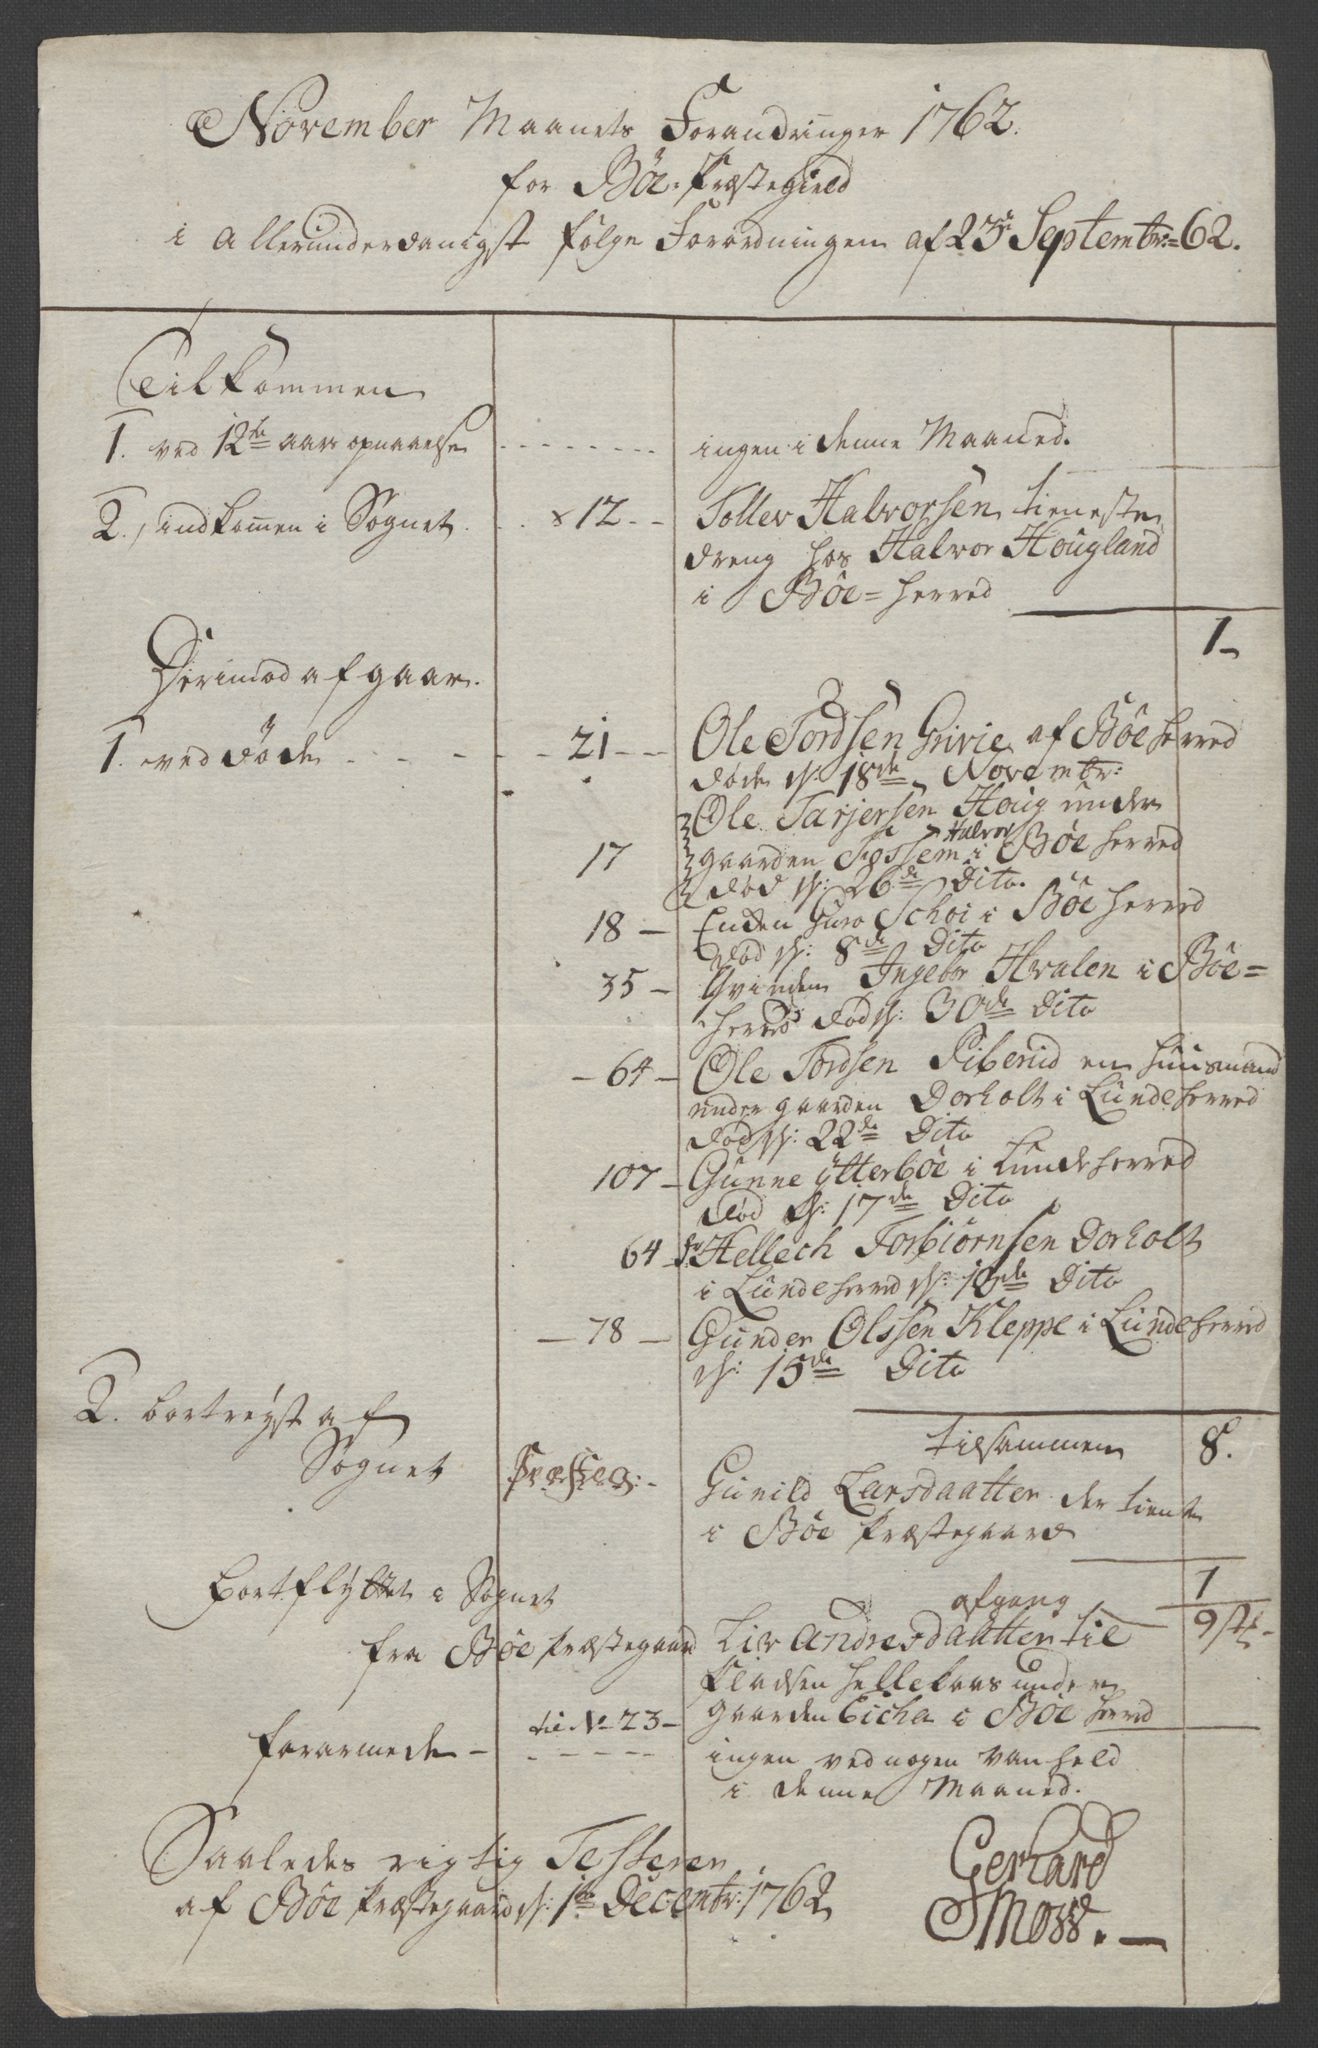 November Maanets Forandringer 1762.
for Bøe Præstegield
i allerunderdanigst følge Forordningen af 23de Septembr: 62.
Tilkommen
1. ved 12te aars opnaaelse - - - - - - ingen i denne Maaned.
2. indkommen i Sognet. - - x 12 - - Tollev Halvorsen tieneste
dreng hos Halvor Hougland
i Bøe= herred
1 -
Derimod afgaar.
1. ved døde - - - - - 21 - - Ole Tordsen Grivie af Bøe herred
døde d: 18de Novembr:
17 Ole Tarjersen Houg under
gaarden Fossem Halvor i Bøe herred
død d: 26de Dito.
18 - Enken Guro Schoi i Bøe herred
død d: 8de Dito
35 - Qvinden Ingebor Hvalen i Bøe=
herred død d: 30de Dito
- 64 - Ole Tordsen Piberud en huusmand
under gaarden Dorholt i Lunde herred
død d: 22de Dito
107 - Gunne ÿtterbøe i Lunde herred
død d: 17de Dito
64 Hellech Torbiørnsen Dorholt
i Lunde herred d: 10de Dito
- 78 - Gunder Olssen Kleppe i Lunde herred
d: 15de Dito
2. bortreyst af
tilsammen 8.
Sognet Præsteg: - Gunild Larsdaatter der tiente
i Bøe Præstegaard
1
bortflÿttet i Sognet
afgang 9
fra Bøe Præstegaard Liv Andresdaatter til
Pladsen hellekaas under
til No 23 - gaarden Eicha i Bøe herred
forarmede - - - - - - ingen ved nogen Vanheld
i denne Maaned.
Saaledes rigtig Testerer
af Bøe Præstegaard d: 1te Decembr: 1762
Gerhard
Moss. -